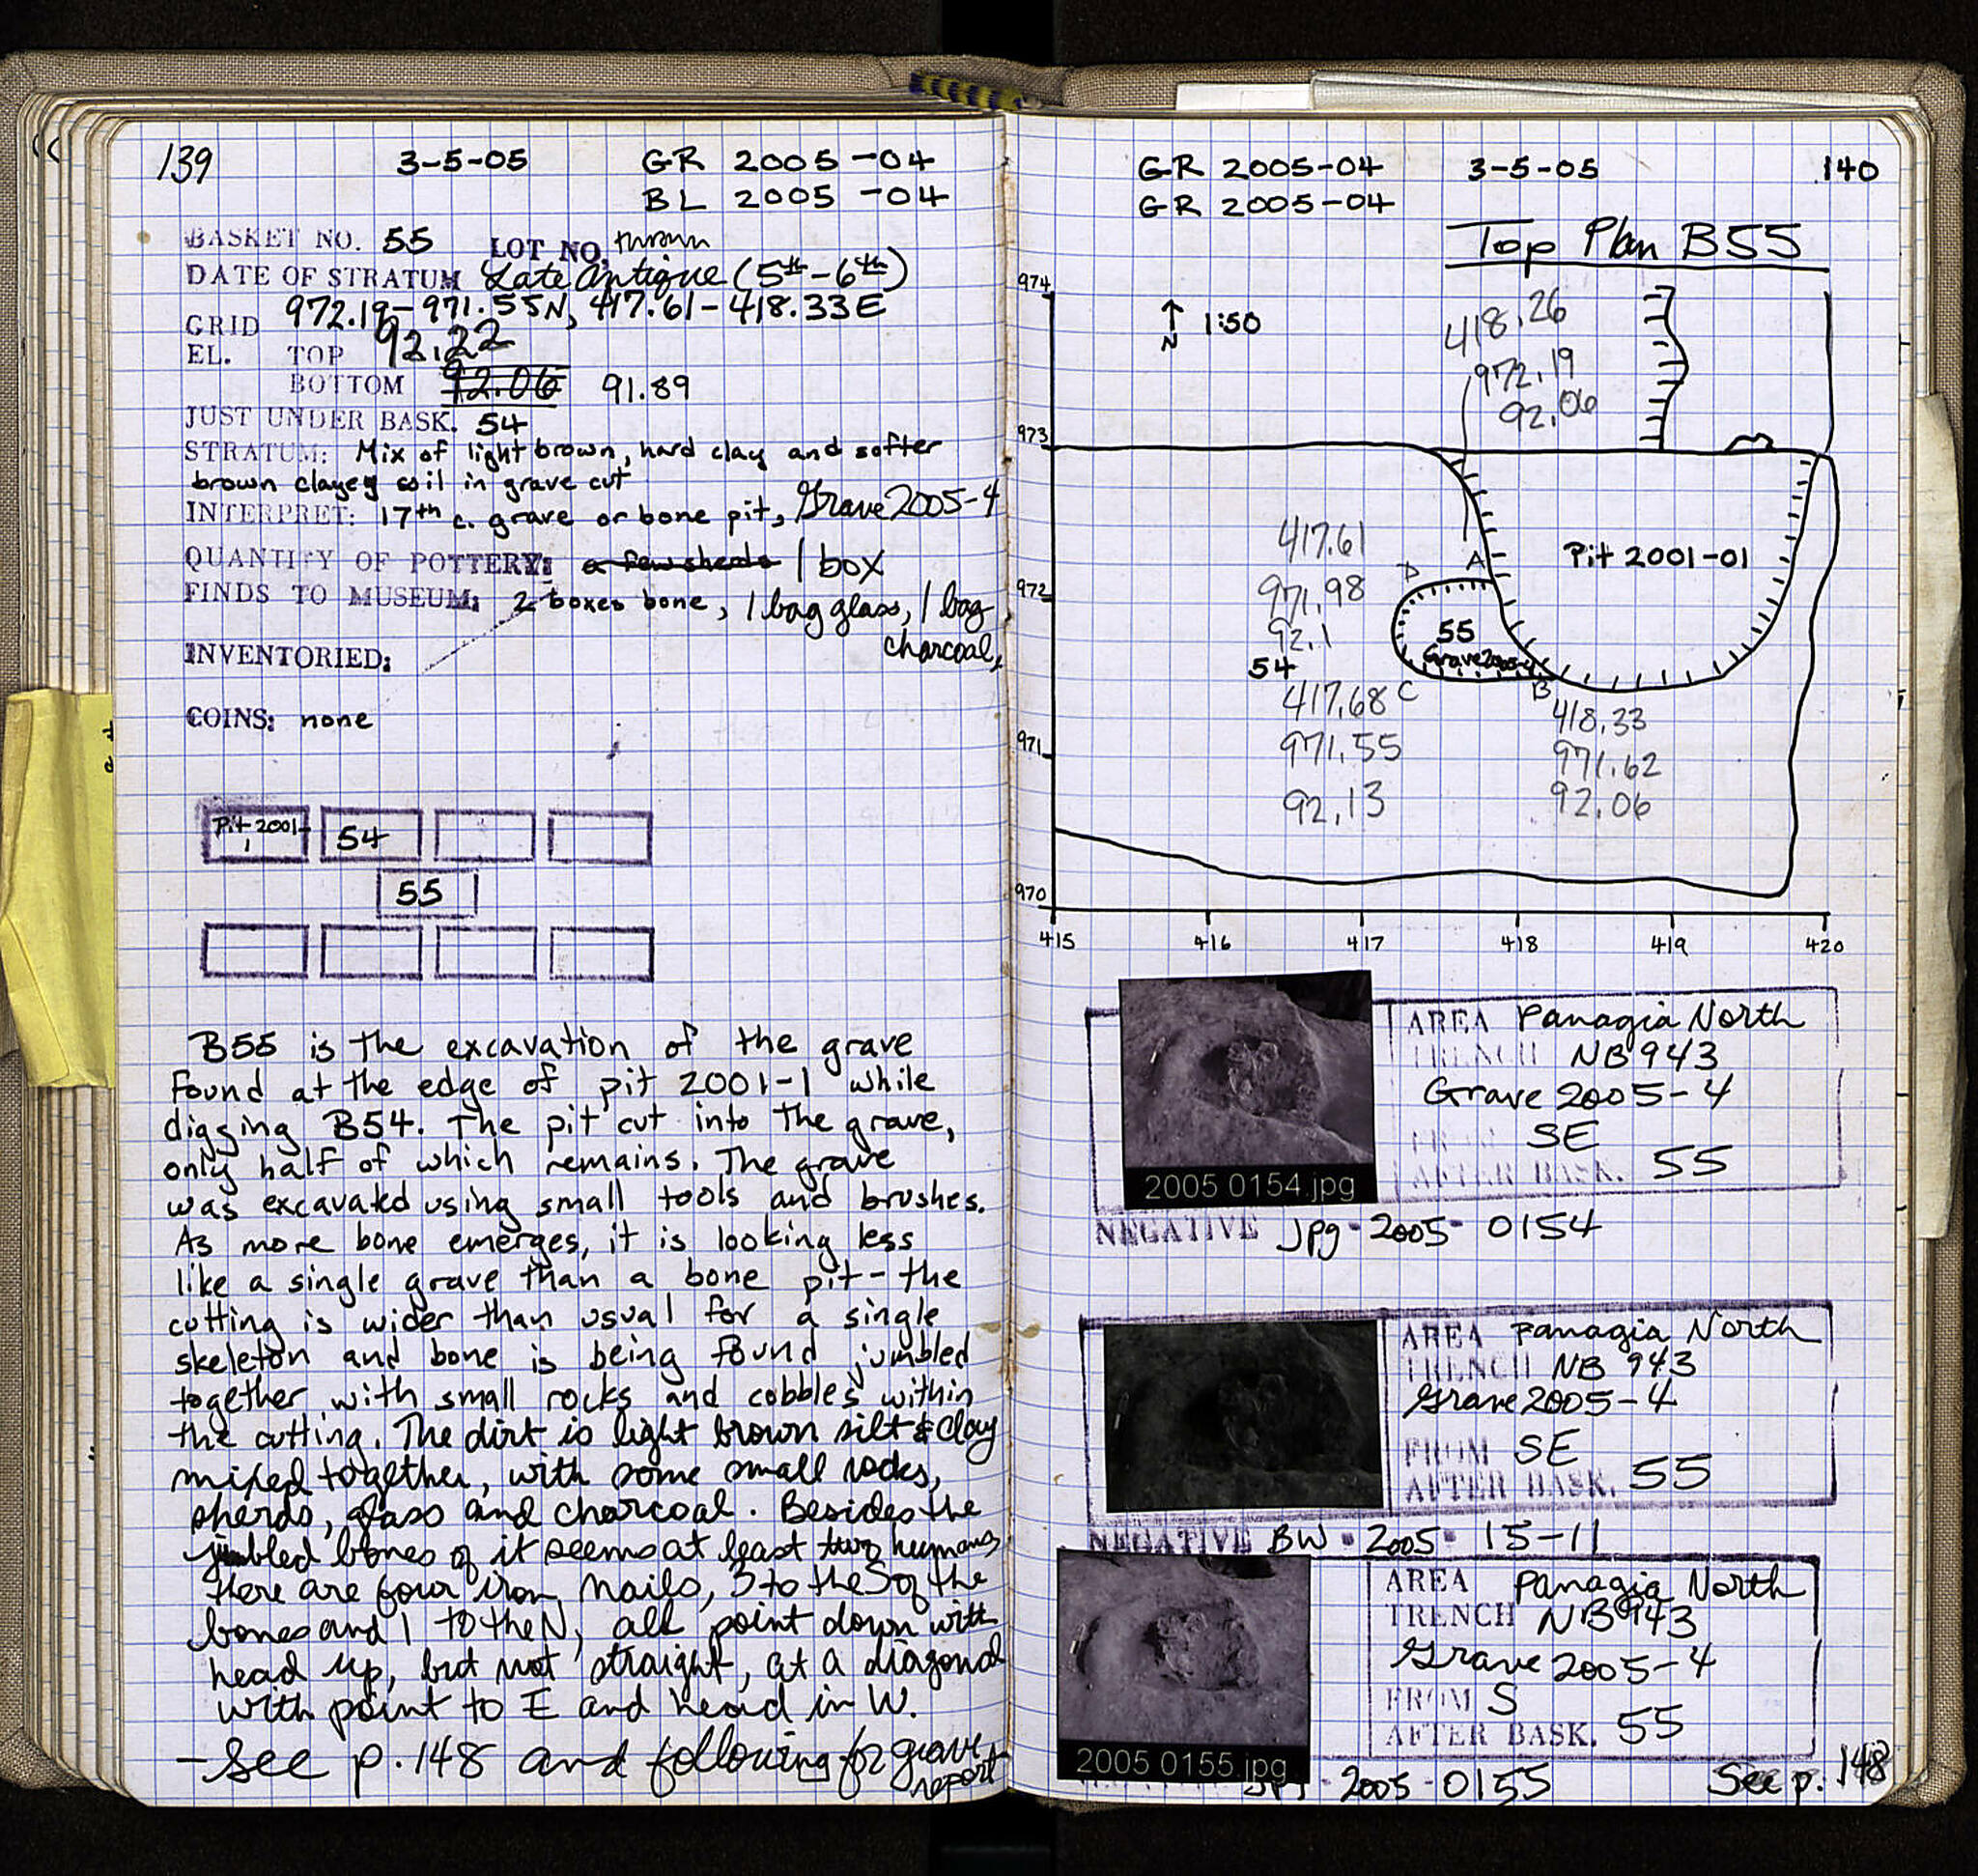 139 3-5-05 GR 2005-04
BL 2005-04
BASKET NO. 55 LOT NO. thrown
DATE OF STRATUM Late Antique (5th-6th)
GRID 972.19-971.55N, 417.61-418.33E
EL. TOP 92.22
BOTTOM 92.06 91.89
JUST UNDER BASK. 54
STRATUM: Mix of light brown, hard clay and softer
brown clayey soil in grave cut
INTERPRET: 17th c. grave or bone pit, Grave 2005-4
QUANTITY OF POTTERY: a few sherds 1 box
FINDS TO MUSEUM: 2 boxes bone, 1 bag glass, 1 bag
charcoal,
INVENTORIED:
COINS: none
Pit 2001-
1
54
55
B55 is the excavation of the grave
found at the edge of pit 2001-1 while
digging B54. The pit cut into the grave,
only half of which remains. The grave
was excavated using small tools and brushes.
As more bone emerges, it is looking less
like a single grave than a bone pit - the
cutting is wider than usual for a single
skeleton and bone is being found jumbled
together with small rocks and cobbles within
the cutting. The dirt is light brown silt & clay
mixed together, with some small rocks,
sherds, glass and charcoal. Besides the
jumbled bones of it seems at least two humans
there are four iron nails, 3 to the S of the
bones and 1 to the N, all point down with
head up, but not straight, at a diagonal
with point to E and head in W.
- See p. 148 and following for grave
report
GR 2005-04 3-5-05 140
GR 2005-04
Top Plan B55
974
N 1:50
418.26
972.19
92.06
973
Pit 2001-01
417.61
971.98
92.1
972
D A
55
Grave 2005-4
54
417.68 C
971.55
92.13
B
418.33
971.62
92.06
971
970
415 416 417 418 419 420
AREA Panagia North
TRENCH NB943
Grave 2005-4
FROM SE
AFTER BASK. 55
2005 0154.jpg
NEGATIVE Jpg-2005-0154
AREA Panagia North
TRENCH NB 943
Grave 2005-4
FROM SE
AFTER BASK. 55
NEGATIVE BW-2005-15-11
AREA Panagia North
TRENCH NB943
Grave 2005-4
FROM S
AFTER BASK. 55
2005 0155.jpg
Jpg-2005-0155
See p. 148